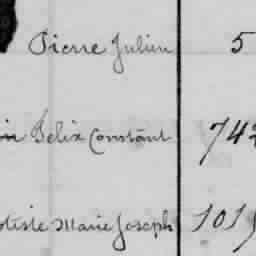 Pierre Julien 5
Félix Constant 742
Marie Joseph 1019